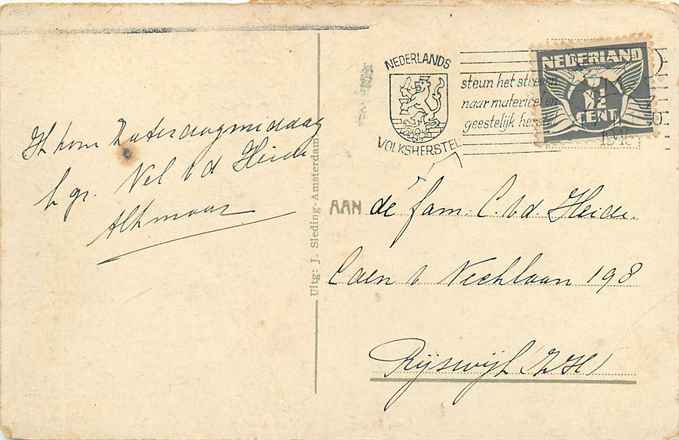 Ik kom Zaterdagmiddag
h. gr. Nel v d Heide
Alkmaar
Uitg: J. Sleding-Amsterdam
NEDERLANDS
VOLKSHERSTEL
steun het stre
naar materieel en
geestelijk he
NEDERLAND
½
CENT
AAN de fam. C. v. d. Heide.
Laan v Nechlaan 198
Rijswijk Z.H.